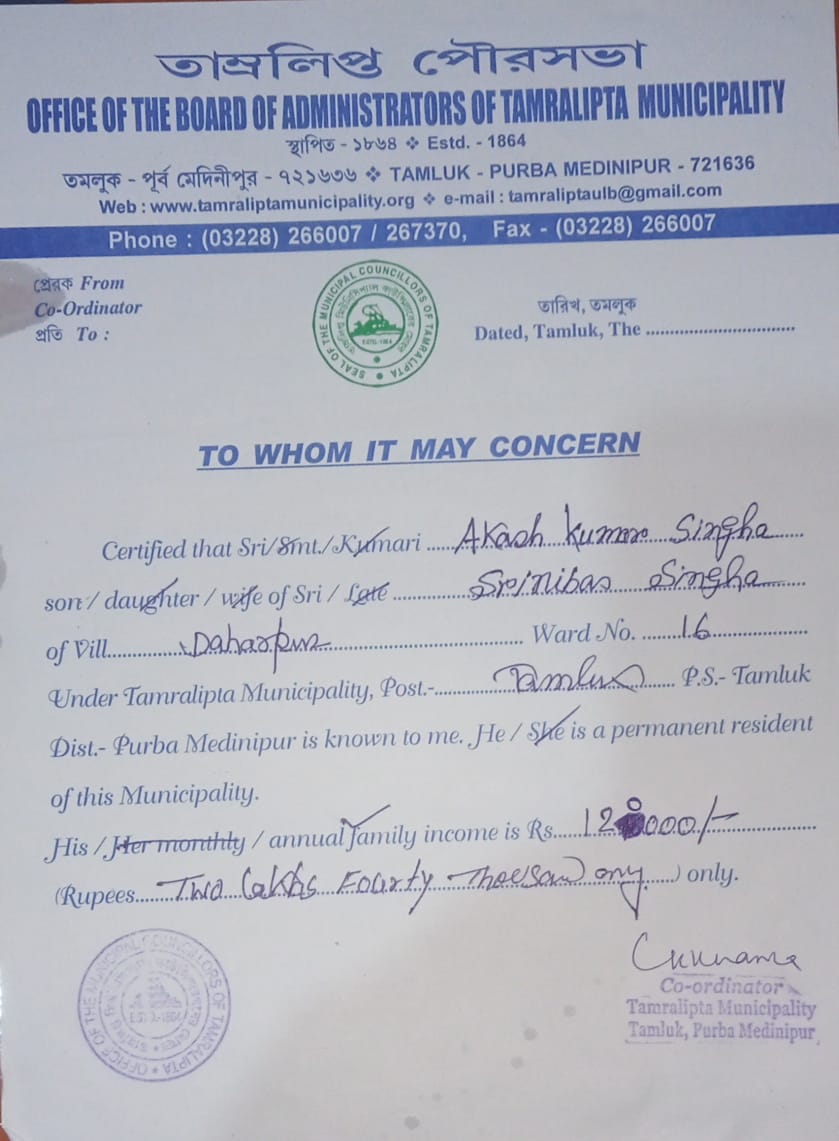 তাম্রলিপ্ত পৌরসভা
OFFICE OF THE BOARD OF ADMINISTRATORS OF TAMRALIPTA MUNICIPALITY
স্থাপিত - ১৮৬৪ ❖ Estd. - 1864
তমলুক - পূর্ব মেদিনীপুর - ৭২১৬৩৬ ❖ TAMLUK - PURBA MEDINIPUR - 721636
Web : www.tamraliptamunicipality.org ❖ e-mail : tamraliptaulb@gmail.com
Phone : (03228) 266007 / 267370, Fax - (03228) 266007
প্রেরক From
Co-Ordinator
প্রতি To :
SEAL OF THE MUNICIPAL COUNCILLORS OF TAMRALIPTA
ESTD.-1864
তারিখ, তমলুক
Dated, Tamluk, The ..............................
TO WHOM IT MAY CONCERN
Certified that Sri/Smt./Kumari ..... Akash Kumar Singha
son / daughter / wife of Sri / Late .............. Srinibas Singha
of Vill............ Daharpur ................................ Ward No. ....... 16 ................
Under Tamralipta Municipality, Post.-........... Tamluk ...... P.S.- Tamluk
Dist.- Purba Medinipur is known to me. He / She is a permanent resident
of this Municipality.
His / Her monthly / annual family income is Rs..... 12 000/- ................
(Rupees........ Two Lakhs Fourty Thousand only .....) only.
OFFICE OF THE MUNICIPAL COUNCILLORS OF TAMRALIPTA
ESTD.-1864
Co-ordinator
Tamralipta Municipality
Tamluk, Purba Medinipur